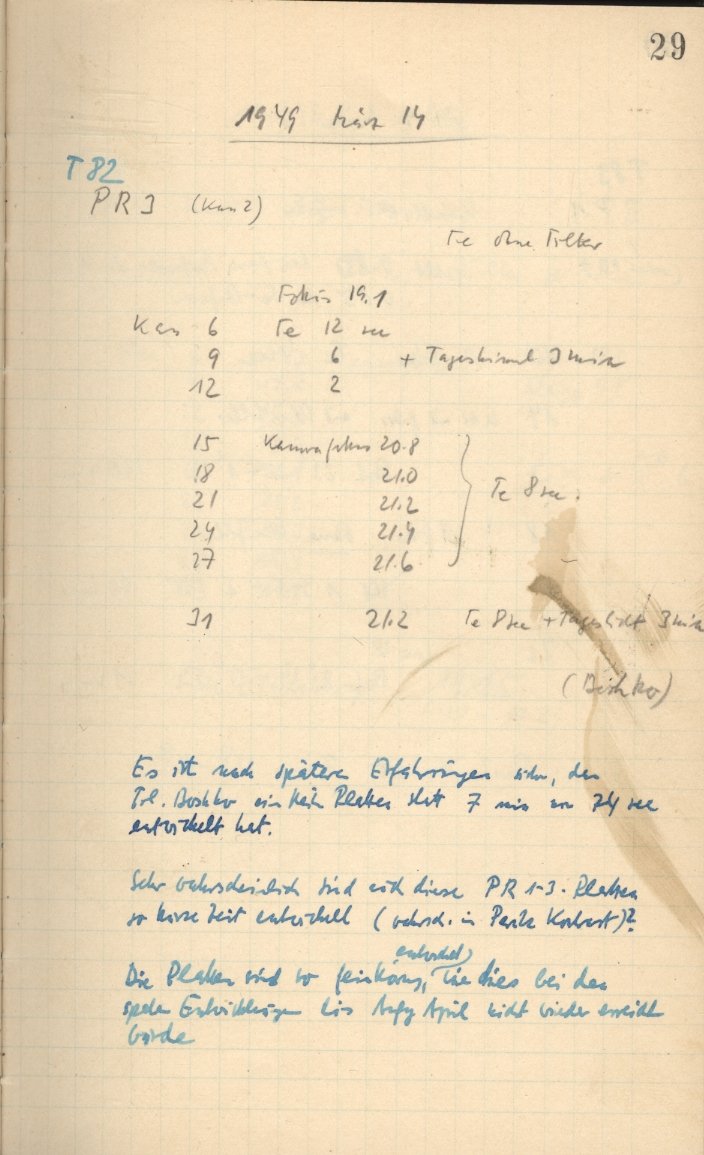 29
1949 März 14
T 82
PR 3 (Kan 2)
Te ohne Filter
Fokus 19.1
Kan 6 Te 12 sec
9 6 + Tageshimmel 3 min
12 2
15 Kamerafokus 20.8
18 21.0
21 21.2 Te 8 sec.
24 21.4
27 21.6
31 21.2 Te 8 sec + Tageslicht 3 min
Es ist nach späteren Erfahrungen
Frl. Platten statt 7 min 24 sec
entwickelt hat.
Sehr wahrscheinlich sind auch diese PR 1-3 - Platten
so kurze Zeit entwickelt (wahrsch. in
entwickelt
Die Platten sind so feinkörnig, wie dies bei den
Entwicklungen bis April nicht wieder erreicht
wurde